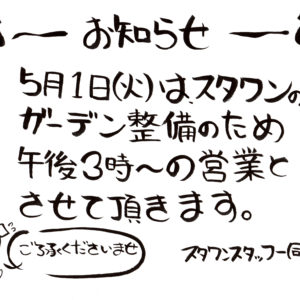 お知らせ
5月1日(火)は、スタワンの
ガーデン整備のため
午後3時〜の営業と
させて頂きます。
ごろ承くださいませ
スタワンスタッフ一同